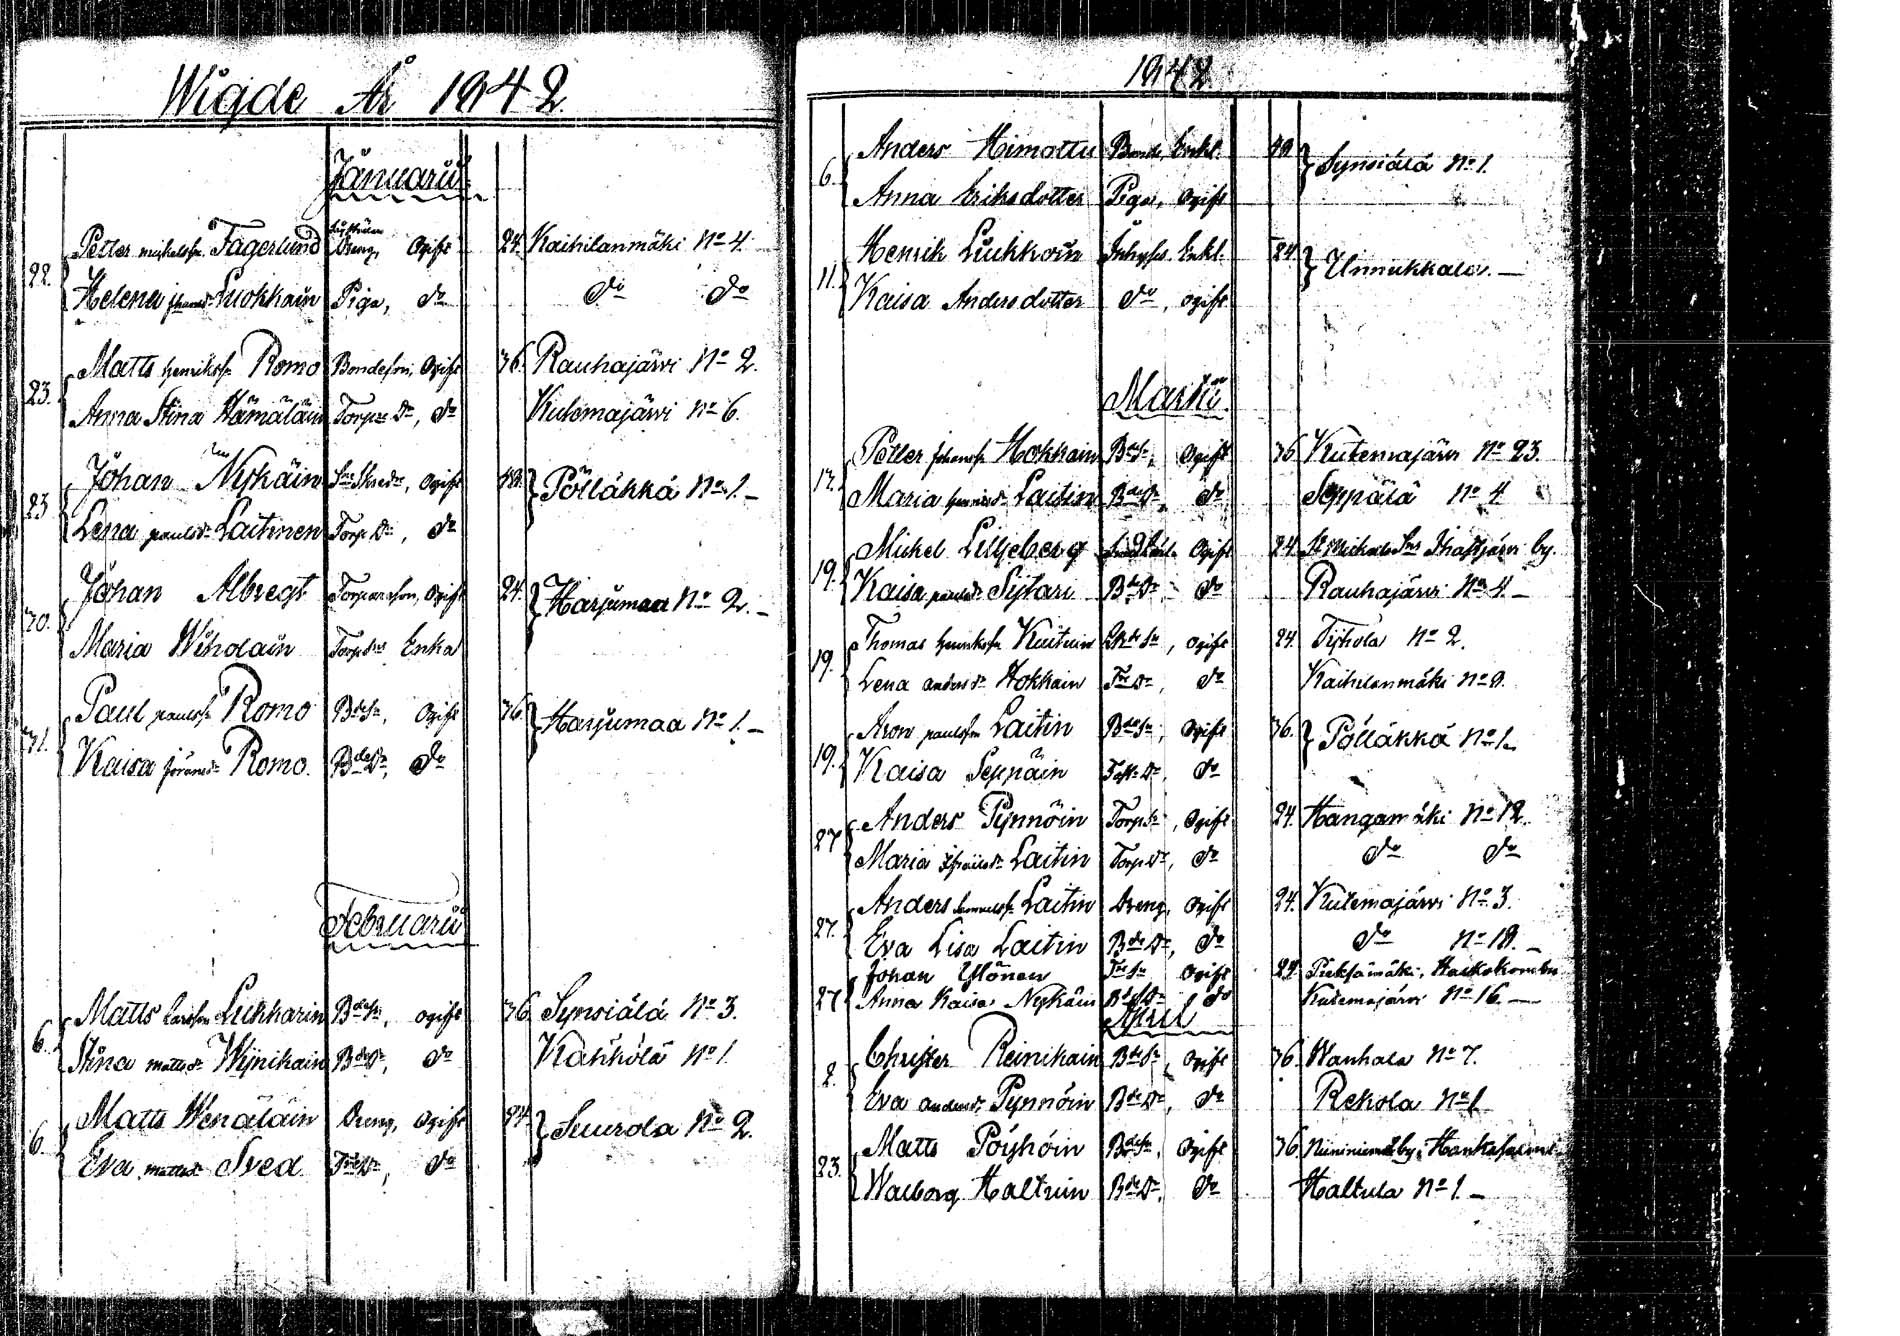 Wigde År 1842.
Januarii
22. Petter mickelss. Fagerlund Dreng, Ogift 24. Kaihilanmäki No 4.
Helena Luokkain Piga, do do do
23. Matts henrikss. Romo Bondeson, Ogift 36. Rauhajärvi No 2.
Anna Stina Hämäläin Torp. Dr, do Kutemajärvi No 6.
23 Johan Nykäin Ogift 48. Pölläkkä No 1.
Lena paulsdr Laitinen Torp. Dr, do
30. Johan Albregt Torpareson, Ogift 24. Harjumaa No 2.
Maria Wiholain Enka
31. Paul paulss. Romo Bde Sn, Ogift 36. Harjumaa No 1.
Kaisa Romo. Bde Dr, do
Februarii
6. Matts larsson Liukkarin Bde Sn, ogift 36 Synsiälä No 3.
Stina mattsdr Wijnikain Bde Dr, do Kärkkölä No 1.
6. Matts Wenäläin Dreng, Ogift 24. Suurola No 2.
Eva mattsdr Sved do
1842.
6. Anders Himottu Bonde, Enkl. 48 Synsiälä No 1.
Anna Eriksdotter Piga, ogift
11. Henrik Liukkoin Inhyses Enkl. 24. Unnukkala.
Kaisa Andersdotter do, ogift
Martii
12. Petter johanss. Hokkain Bde Sn, Ogift 36 Kutemajärvi No 23.
Maria Laitin Bde Dr, do Seppälä No 4
19. Mickel Liljeberg Ogift 24. St Michels by.
Kaisa paulsdr Sijtari Bde Dr, do Rauhajärvi No 4
19. Thomas henrikss. Kuituin ogift 24. Tyhola No 2.
Lena andersdr Hokkain do Kaihilanmäki No 8.
19. Aron paulsson Laitin Bde Sn, ogift 36. Pölläkkä No 1.
Kaisa Seppäin do
27 Anders Pynnöin Torp Sn, ogift 24. Hanganmäki No 12.
Maria Laitin Torp Dr, do do do
27. Anders samuelss. Laitin Dreng, ogift 24. Kutemajärvi No 3.
Eva Lisa Laitin Bde Dr, do do No 18.
27 Johan Ylönen ogift 24. Pieksämäki,
Anna Kaisa Nykäin Bde Dr do Kutemajärvi No 16.
April
2. Christer Reinikain Bde Sn, ogift 36. Wanhala No 7.
Eva andersdr Pynnöin Bde Dr, do Rekola No 1
23. Matts Pöyhöin Bde Sn, Ogift 36. Niininiemi by, Hankasalmi
Walborg Haltuin Bde Dr, do Haltula No 1.